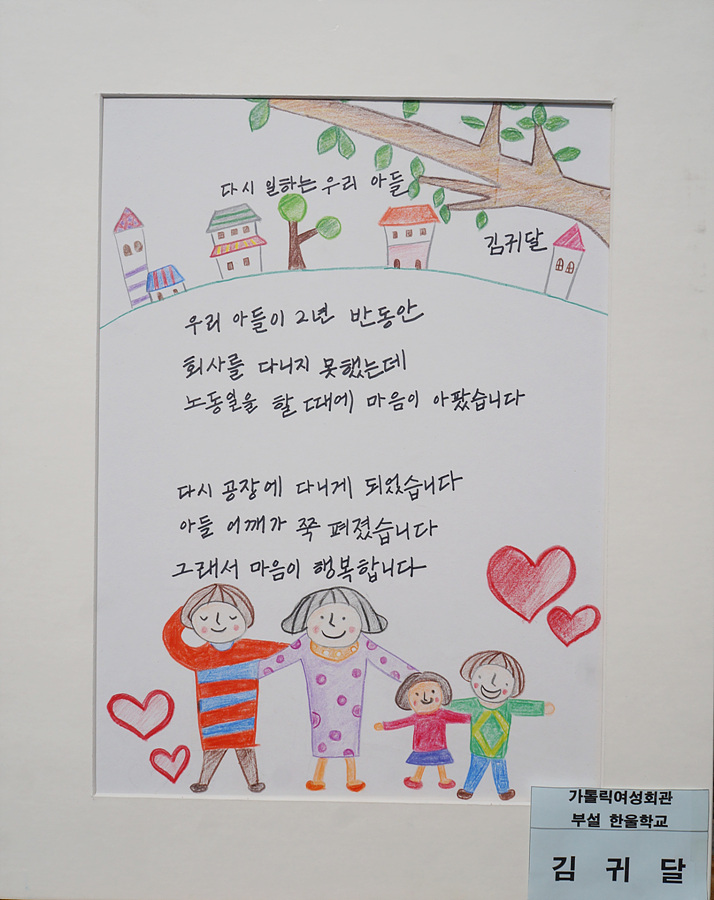 다시 일하는 우리 아들
김귀달
우리 아들이 2년 반동안
회사를 다니지 못했는데
노동일을 할 때에 마음이 아팠습니다
다시 공장에 다니게 되었습니다
아들 어깨가 쭉 펴졌습니다
그래서 마음이 행복합니다
가톨릭여성회관
부설 한울학교
김 귀 달